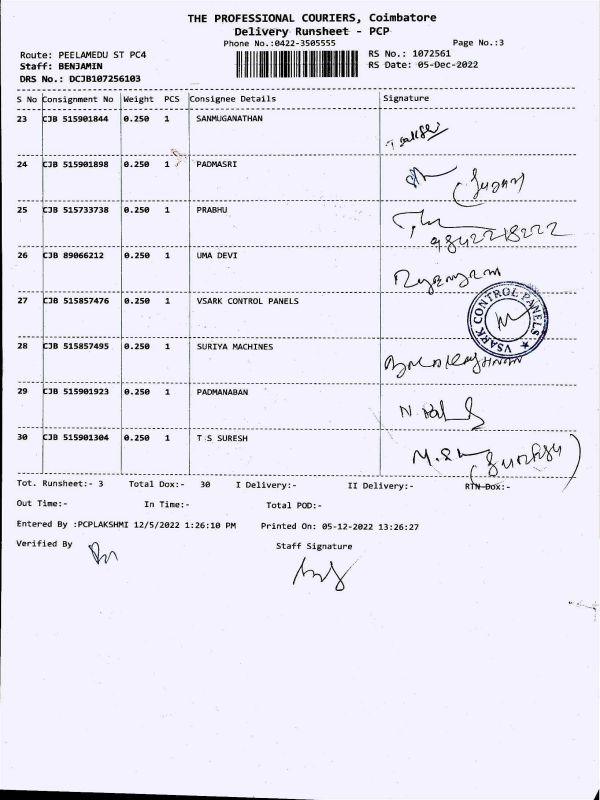 THE PROFESSIONAL COURIERS, Coimbatore
Delivery Runsheet - PCP
Phone No.:0422-3505555 Page No.:3
Route: PEELAMEDU ST PC4 RS No.: 1072561
Staff: BENJAMIN RS Date: 05-Dec-2022
DRS No.: DCJB107256103
S No Consignment No Weight PCS Consignee Details Signature
23 CJB 515901844 0.250 1 SANMUGANATHAN
24 CJB 515901898 0.250 1 PADMASRI
25 CJB 515733738 0.250 1 PRABHU
9842218222
26 CJB 89066212 0.250 1 UMA DEVI
27 CJB 515857476 0.250 1 VSARK CONTROL PANELS
VSARK CONTROL PANELS
28 CJB 515857495 0.250 1 SURIYA MACHINES
29 CJB 515901923 0.250 1 PADMANABAN
30 CJB 515901304 0.250 1 T S SURESH
Tot. Runsheet:- 3 Total Dox:- 30 I Delivery:- II Delivery:- RTN Dox:-
Out Time:- In Time:- Total POD:-
Entered By :PCPLAKSHMI 12/5/2022 1:26:10 PM Printed On: 05-12-2022 13:26:27
Verified By Staff Signature